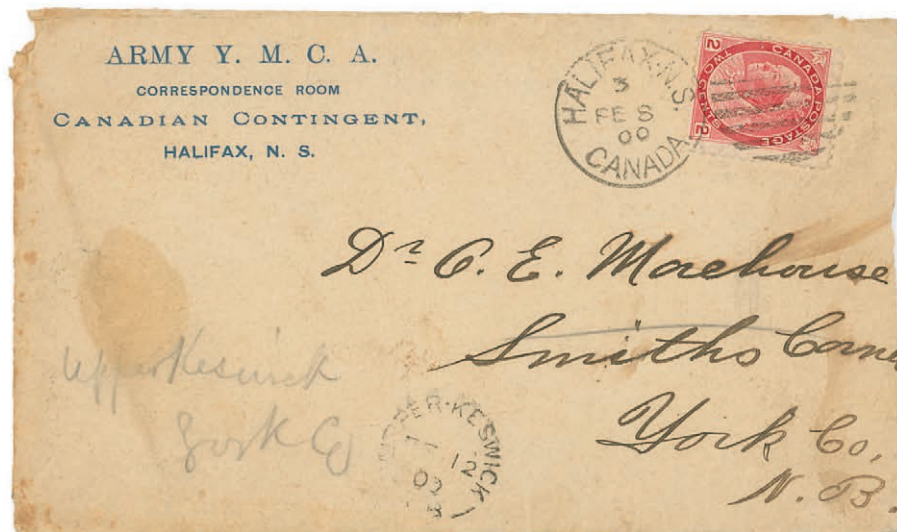 ARMY Y. M. C. A.
CORRESPONDENCE ROOM
CANADIAN CONTINGENT,
HALIFAX, N. S.
HALIFAX, N.S.
3
FE 8
00
CANADA
CANADA POSTAGE
TWO CENTS
2
2
Dr C. E. Morehouse
Smiths Corne
York Co,
N. B.
Upper Keswick
York Co
UPPER-KESWICK
12